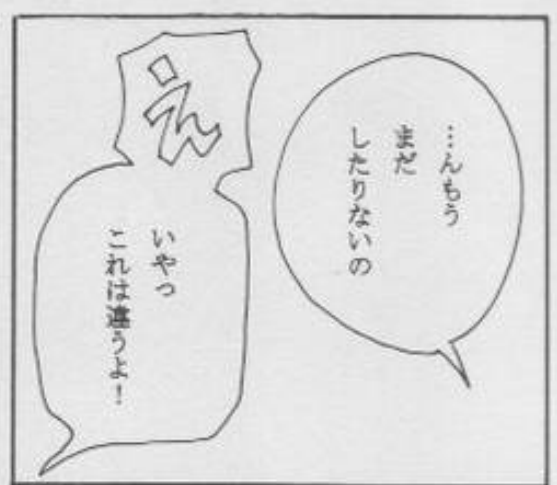 …んもう
まだ
したりないの
え
いやっ
これは違うよ！